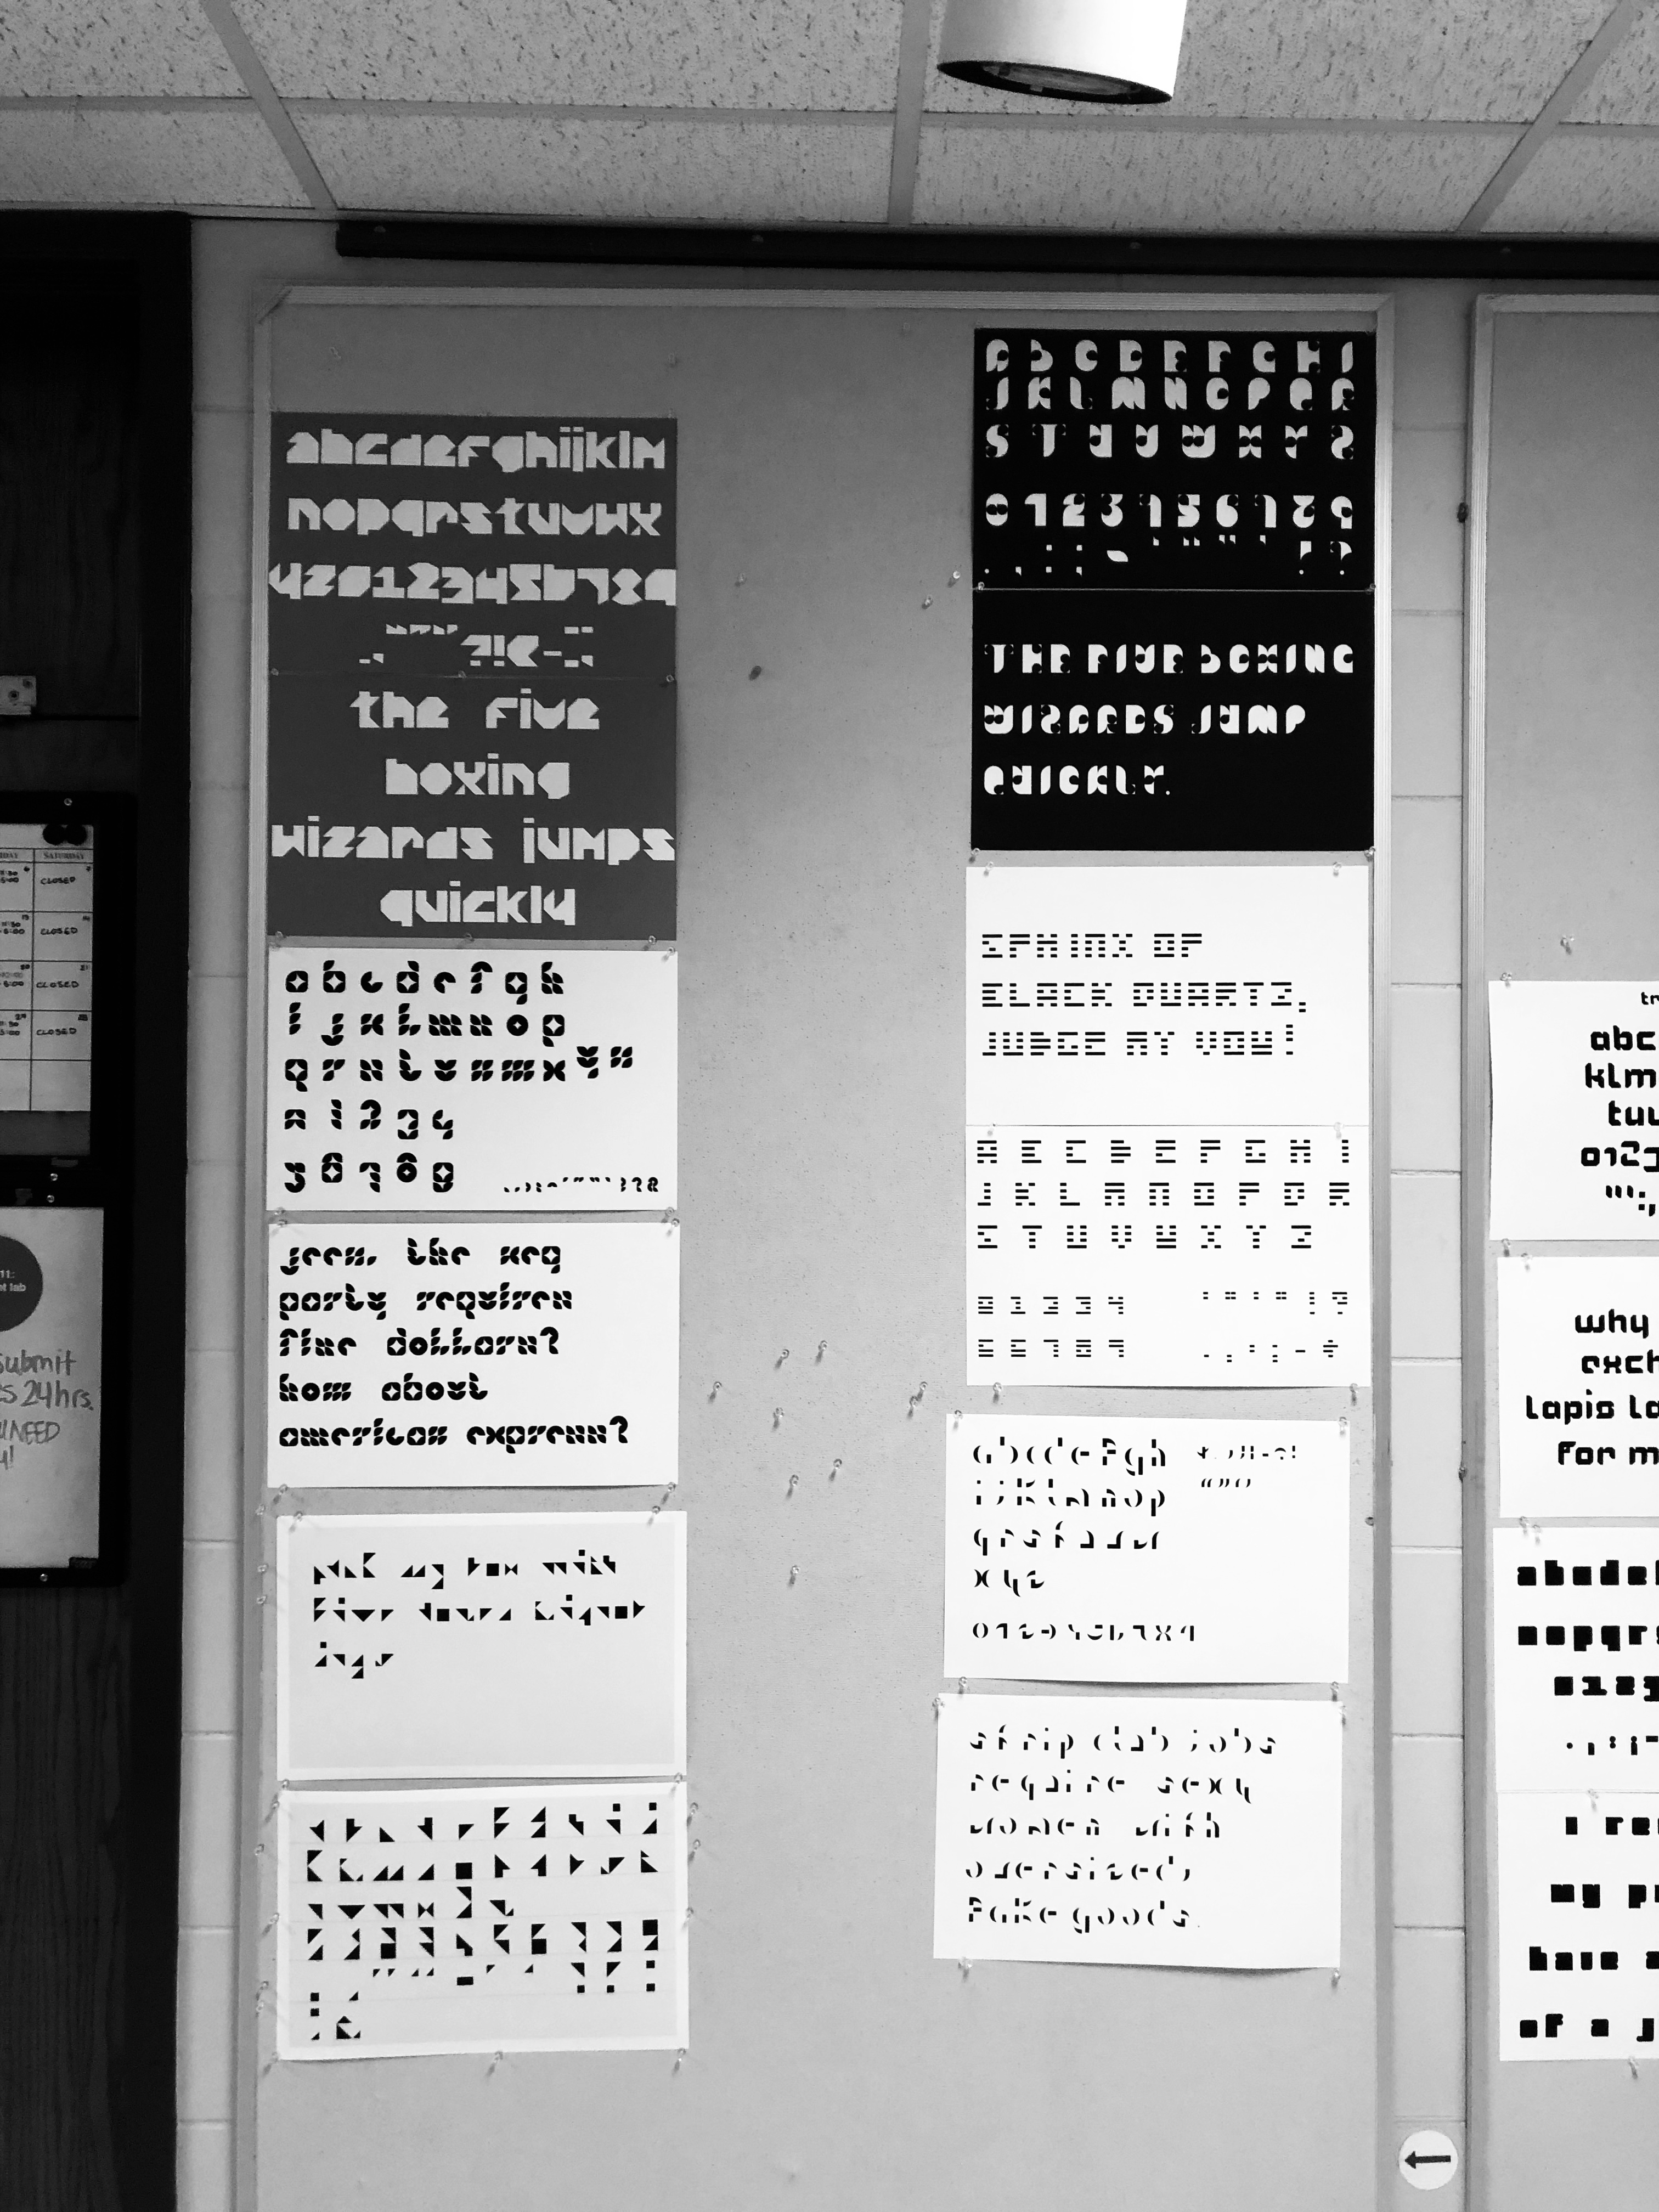 abcdefghijklm
nopqrstuvwx
yz0123456789
?!
the five
boxing
wizards jumps
quickly
abcdefgh
ijklmnop
qrstuvwxyz
01234
56789
jeez, the keg
party requires
five dollars?
how about
american express?
pack my box with
five dozen liquor
jugs
ABCDEFGHI
JKLMNOPQR
STUVWXYZ
0123456789
.,:;-'""'!?
THE FIVE BOXING
WIZARDS JUMP
QUICKLY.
SPHINX OF
BLACK QUARTZ,
JUDGE MY VOW!
ABCDEFGHI
JKLMNOPQR
STUVWXYZ
01234
56789
abcdefgh
ijklmnop
qrstuvw
xyz
0123456789
strip club jobs
require sexy
women with
oversized,
fake goods.
abc
klm
tuv
012
why
exch
lapis la
for m
abcdef
nopqrs
0123
i re
my p
have a
of a j
SATURDAY
CLOSED
CLOSED
CLOSED
CLOSED
11:
t lab
submit
24hrs.
NEED